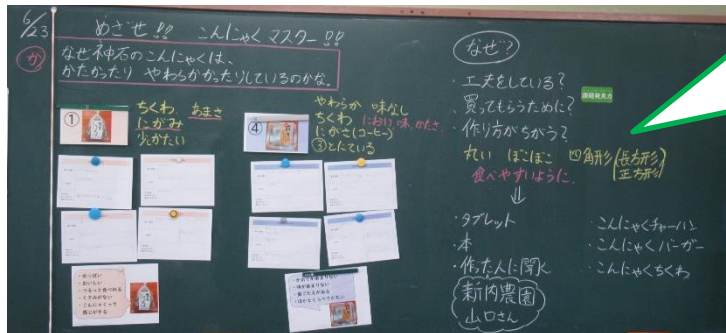 6/23
めざせ!! こんにゃくマスター!!
か
なぜ神石のこんにゃくは、
かたかったり やわらかかったりしているのかな。
①
ちくわ あまさ
にがみ
少しかたい
④
やわらか 味なし
ちくわ におい、味、かたさ
にがさ(コーヒー)
③とにている
なぜ?
・工夫をしている?
買ってもらうために?
課題発見力
・作り方がちがう?
丸い ぼこぼこ 四角形(長方形
正方形)
食べやすいように
↓
・タブレット
・本
・作った人に聞く
新内農園
山口さん
・こんにゃくチャーハン
・こんにゃくバーガー
・こんにゃくちくわ
・おいしい
・くさみがない